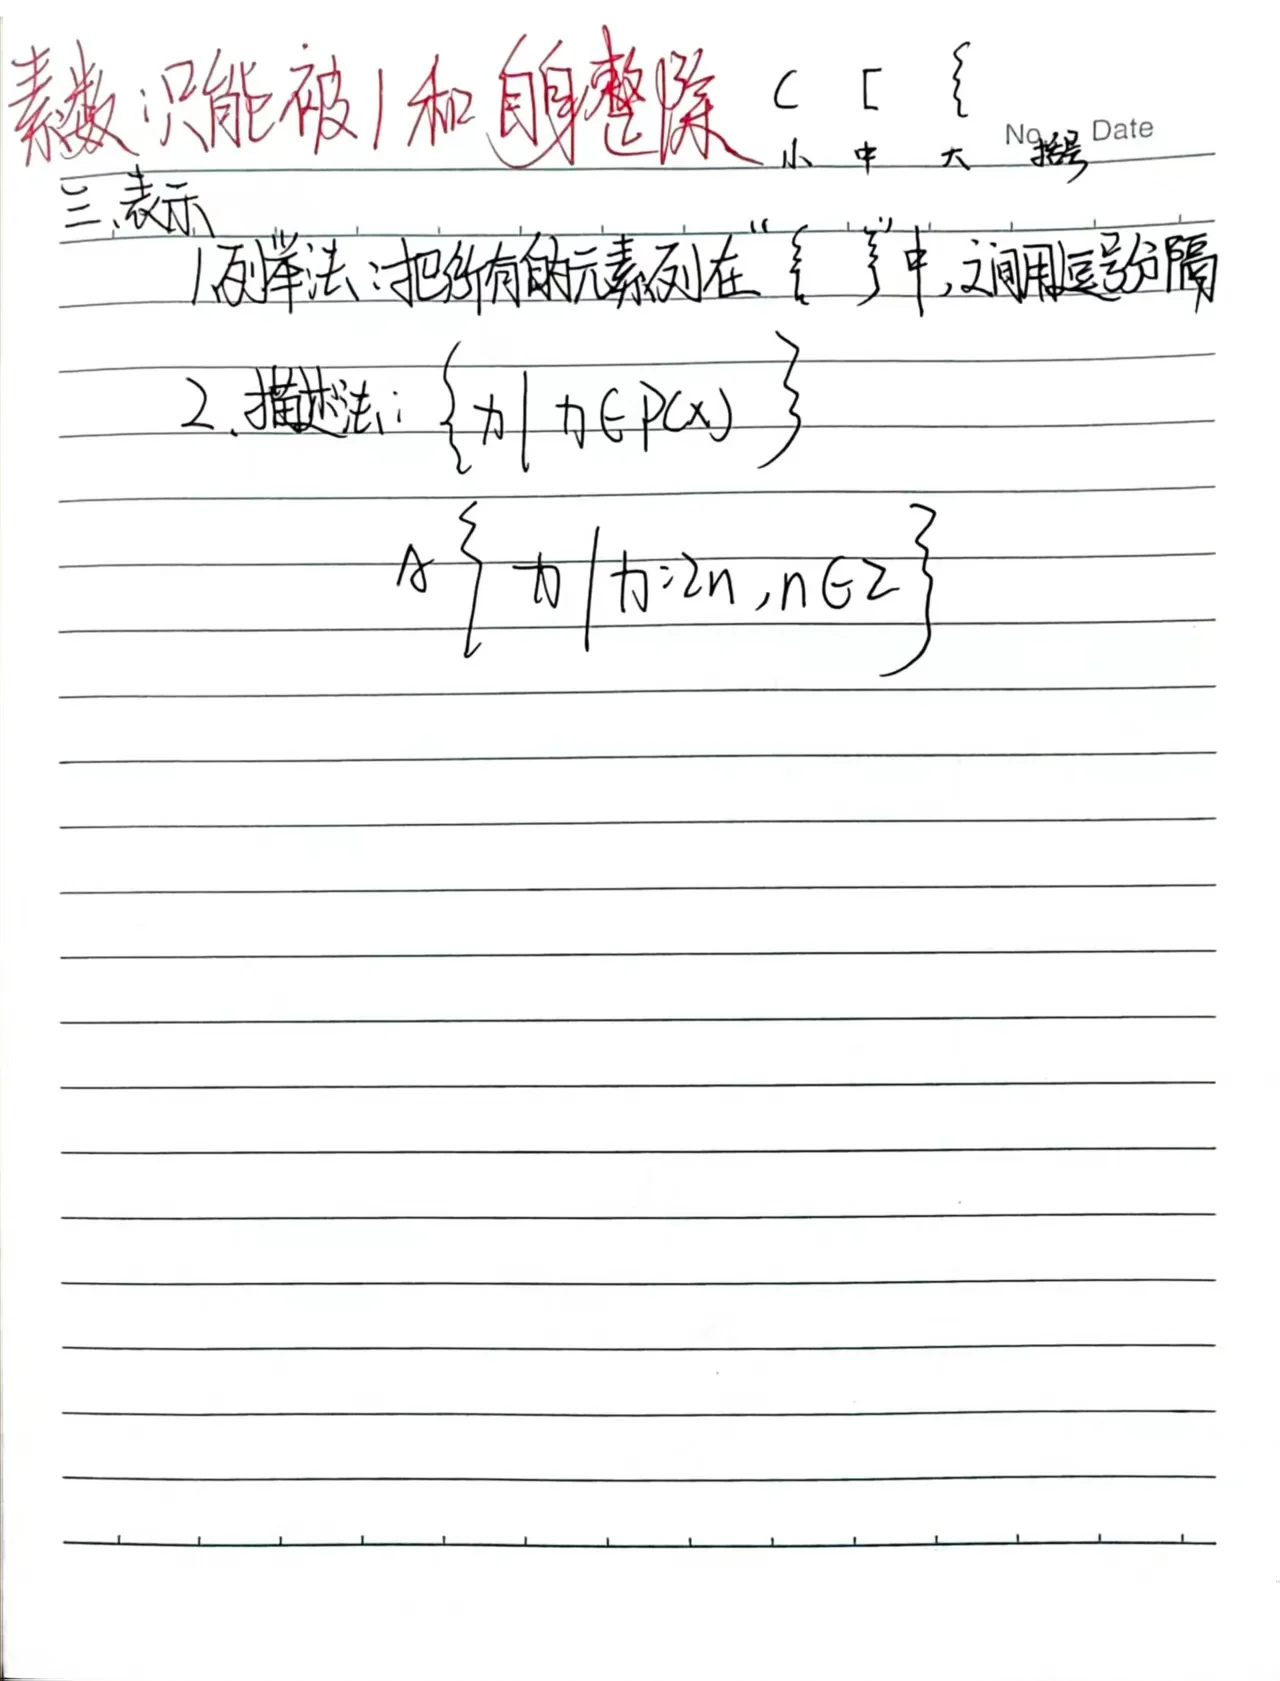 素数:只能被1和自身整除
( [ {
小 中 大 括号
No. Date
三、表示
1.列举法:把所有的元素列在“{ }”中,之间用逗号分隔
2.描述法:{x|x∈P(x)}
A{x|x=2n,n∈Z}